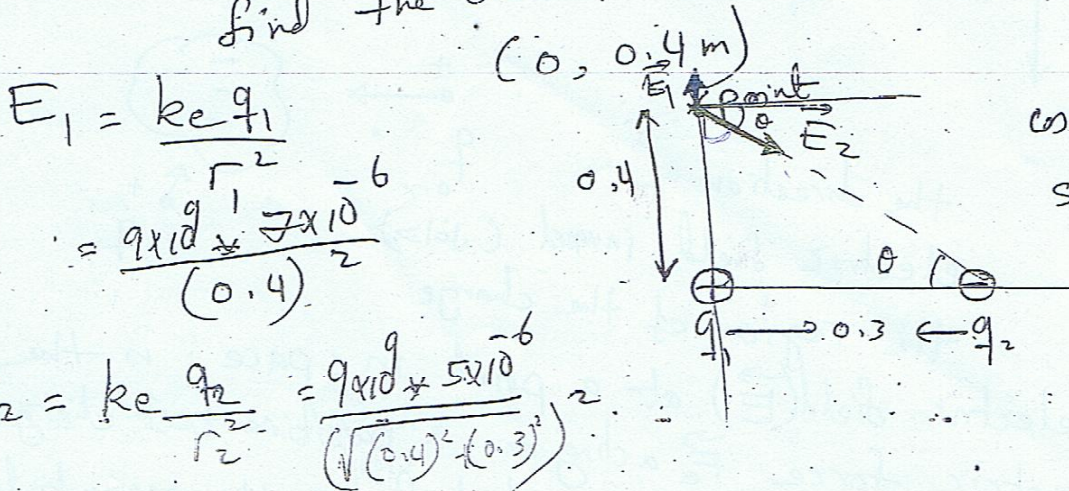 find the
(0, 0.4 m)
E₁ = ke q₁ / r₁²
= 9x10⁹ * 7x10⁻⁶ / (0.4)²
₂ = ke q₂ / r₂² = 9x10⁹ * 5x10⁻⁶ / (√(0.4)²+(0.3)²)²
E₁ point
θ E₂
0.4
θ
q₁ → 0.3 ← q₂
cos
s